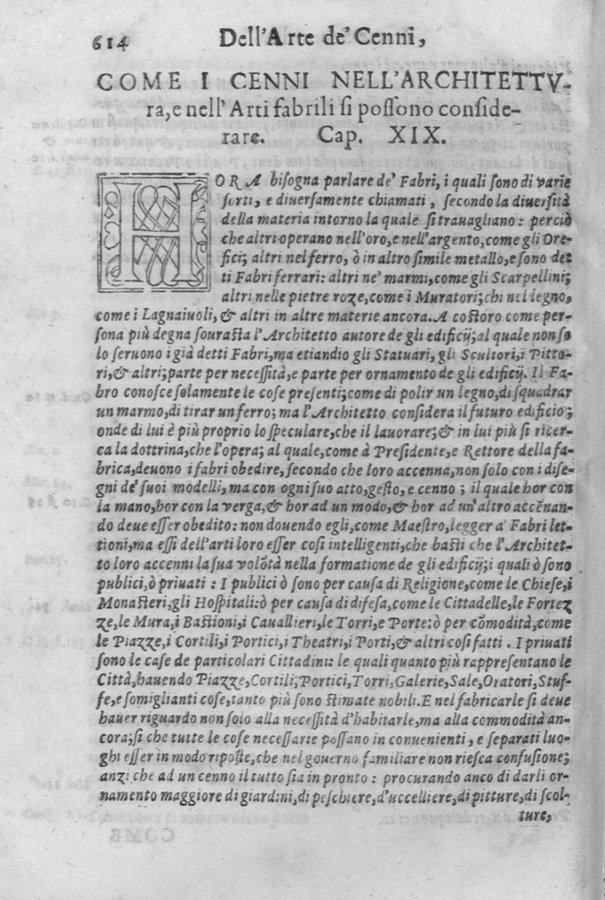 614 Dell'Arte de' Cenni,
COME I CENNI NELL'ARCHITETTV-
ra, e nell'Arti fabrili si possono conside-
rare. Cap. XIX.
HORA bisogna parlare de' Fabri, i quali sono di varie
sorti, e diuersamente chiamati, secondo la diuersità
della materia intorno la quale si trauagliano: perciò
che altri operano nell'oro, e nell'argento, come gli Ore-
fici; altri nel ferro, ò in altro simile metallo, e sono det
ti Fabri ferrari: altri ne' marmi, come gli Scarpellini;
altri nelle pietre roze, come i Muratori; chi nel legno,
come i Lagnaiuoli, & altri in altre materie ancora. A costoro come per-
sona più degna sourasta l'Architetto autore de gli edificij; al quale non so
lo seruono i già detti Fabri, ma etiandio gli Statuari, gli Scultori, i Pitto-
ri, & altri; parte per necessità, e parte per ornamento de gli edificij. Il Fa-
bro conosce solamente le cose presenti; come di polir un legno, di squadrar
un marmo, di tirar un ferro; ma l'Architetto considera il futuro edificio;
onde di lui è più proprio lo speculare, che il lauorare; & in lui più si ricer-
ca la dottrina, che l'opera; al quale, come à Presidente, e Rettore della fa-
brica, deuono i fabri obedire, secondo che loro accenna, non solo con i dise-
gni de' suoi modelli, ma con ogni suo atto, gesto, e cenno; il quale hor con
la mano, hor con la verga, & hor ad un modo, & hor ad un'altro accēnan-
do deue esser obedito: non douendo egli, come Maestro, legger a' Fabri let-
tioni, ma essi dell'arti loro esser cosi intelligenti, che basti che l'Architet-
to loro accenni la sua volōtà nella formatione de gli edificij; i quali ò sono
publici, ò priuati: I publici ò sono per causa di Religione, come le Chiese, i
Monasteri, gli Hospitali: ò per causa di difesa, come le Cittadelle, le Fortez
ze, le Mura, i Bastioni, i Cauallieri, le Torri, e Porte: ò per cōmodità, come
le Piazze, i Cortili, i Portici, i Theatri, i Porti, & altri cosi fatti. I priuati
sono le case de particolari Cittadini: le quali quanto più rappresentano le
Città, hauendo Piazze, Cortili, Portici, Torri, Galerie, Sale, Oratori, Stuf-
fe, e somiglianti cose, tanto più sono stimate nobili. E nel fabricarle si deue
hauer riguardo non solo alla necessità d'habitarle, ma alla commodità an-
cora; si che tutte le cose necessarie possano in conuenienti, e separati luo-
ghi esser in modo riposte, che nel gouerno familiare non riesca confusione;
anzi che ad un cenno il tutto sia in pronto: procurando anco di darli or-
namento maggiore di giardini, di peschiere, d'uccelliere, di pitture, di scol-
ture,